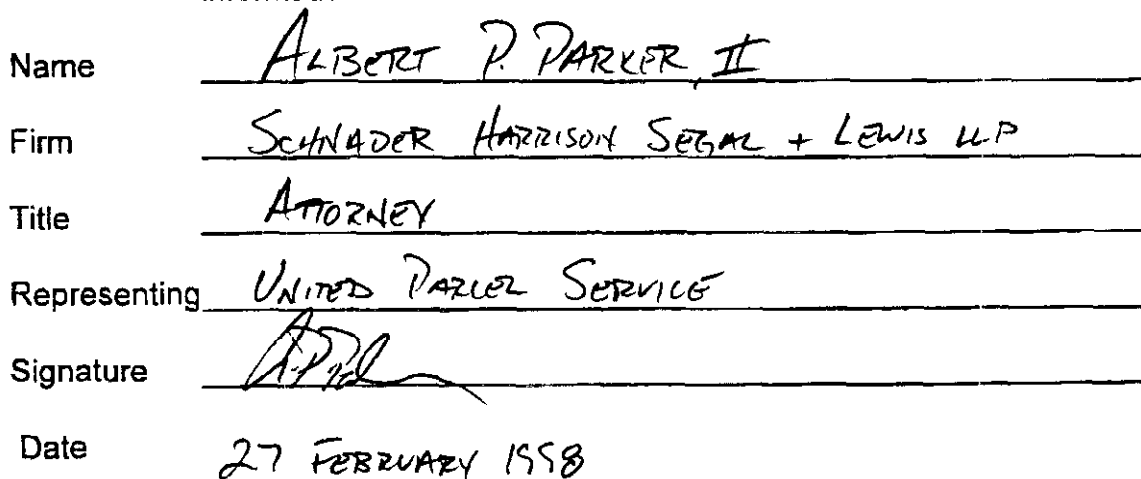 Name ALBERT P. PARKER, II
Firm SCHNADER HARRISON SEGAL + LEWIS LLP
Title ATTORNEY
Representing UNITED PARCEL SERVICE
Signature
Date 27 FEBRUARY 1998